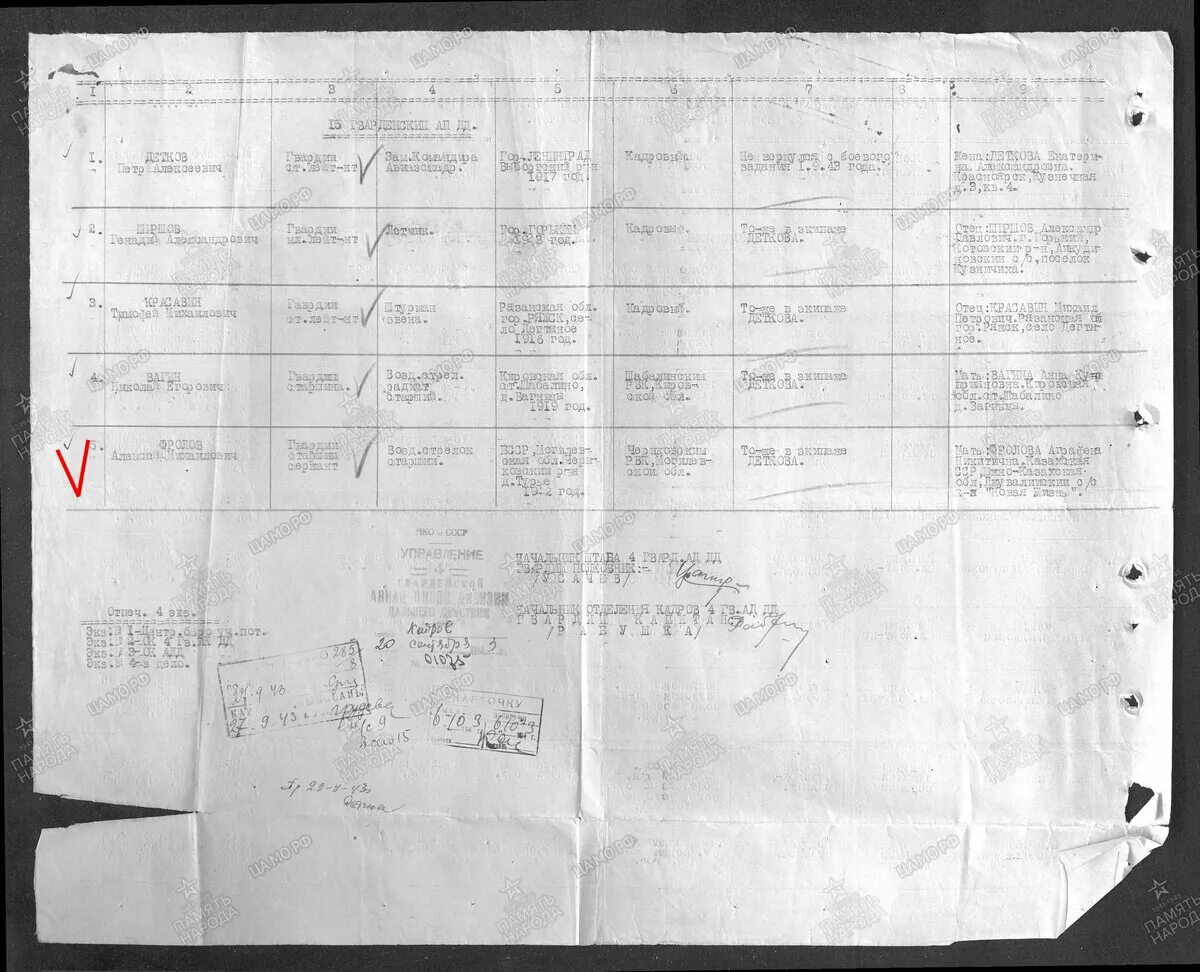 1 2 3 4 5 6 7 8 9
15 ГВАРДЕЙСКИЙ АП ДД.
1. ДЕТКОВ
Петр Алексеевич
Гвардии
ст.лейт-нт
Зам.Командира
Авиаэскадр.
Гор.ЛЕНИНГРАД
Выборгский р-н
1917 год.
Кадровый.
Не вернулся с боевого
задания 1.9.43 года.
Жена:ДЕТКОВА Екатери-
на Александровна.
Красноярск,Кузнечная
д.3,кв.4.
2. ШИРШОВ
Генадий Александрович
Гвардии
мл.лейт-нт
Летчик.
Гор.ГОРЬКИЙ
год.
Кадровый.
То-же в экипаже
ДЕТКОВА.
Отец:ШИРШОВ Александр
Павлович.г.Горький,
с/с,поселок
Кузничиха.
3. КРАСАВИН
Тимофей Михаилович
Гвардии
ст.лейт-нт
Штурман
звена.
Рязанская обл.
гор.РЯЖСК,се-
ло Дегтяное
1916 год.
Кадровый.
То-же в экипаже
ДЕТКОВА.
Отец:КРАСАВИН Михаил
Петрович.Рязанская
гор.Ряжск,село Дегтя-
ное.
4. ВАГИН
Николай Егорович
Гвардии
старшина.
Возд.стрел.
радист
старший.
Кировская обл.
ст.Шабалино,
д.Вагины
1919 год.
Шабалинским
РВК,Киров-
ской обл.
То-же в экипаже
ДЕТКОВА.
Мать:ВАГИНА Анна
Кировская
обл.ст.Шабалино
д.Вагины.
5. ФРОЛОВ
Алексей Михаилович
Гвардии
старший
сержант
Возд.стрелок
старший.
БССР,Могилев-
ская обл.Чери-
ковский р-н
д.Турье
год.
Чериковским
РВК,Могилев-
ской обл.
То-же в экипаже
ДЕТКОВА.
Мать:ФРОЛОВА Аграфена
Никитична,Казахская
ССР,Южно-Казахская
обл,Джувалинский с/с
к-з "Новая Жизнь".
НКО-СССР
УПРАВЛЕНИЕ
4
ГВАРДЕЙСКОЙ
АВИАЦИОННОЙ ДИВИЗИИ
ДАЛЬНЕГО ДЕЙСТВИЯ
Кадров
20 сентября 3
01075
НАЧАЛЬНИК ШТАБА 4 ГВАРД.АД ДД
ГВАРДИИ ПОЛКОВНИК:-
/УСАЧЕВ/
НАЧАЛЬНИК ОТДЕЛЕНИЯ КАДРОВ 4 ГВ.АД ДД
ГВАРДИИ КАПИТАН:
/РЯБУШКА/
Отпеч. 4 экз.
Экз.№ 1-Центр.бюро уч.пот.
Экз.№ 2-ОК 4 Гв.АК ДД
Экз.№ 3-ОК АДД
Экз.№ 4-в дело.
9 43
27.9-43
КАРТОЧКУ
ПАМЯТЬ НАРОДА
ЦАМО.РФ